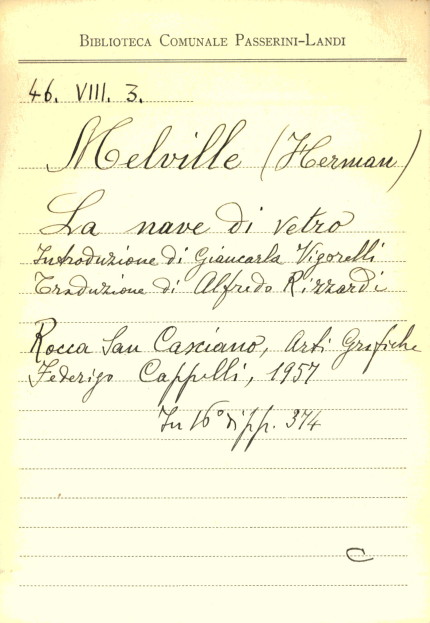 BIBLIOTECA COMUNALE PASSERINI-LANDI
46. VIII. 3.
Melville (Herman)
La nave di vetro
Introduzione di Giancarla Vigorelli
Traduzione di Alfredo Rizzardi
Rocca San Casciano, Arti Grafiche
Federigo Cappelli, 1957
In 16° di pp. 374
C